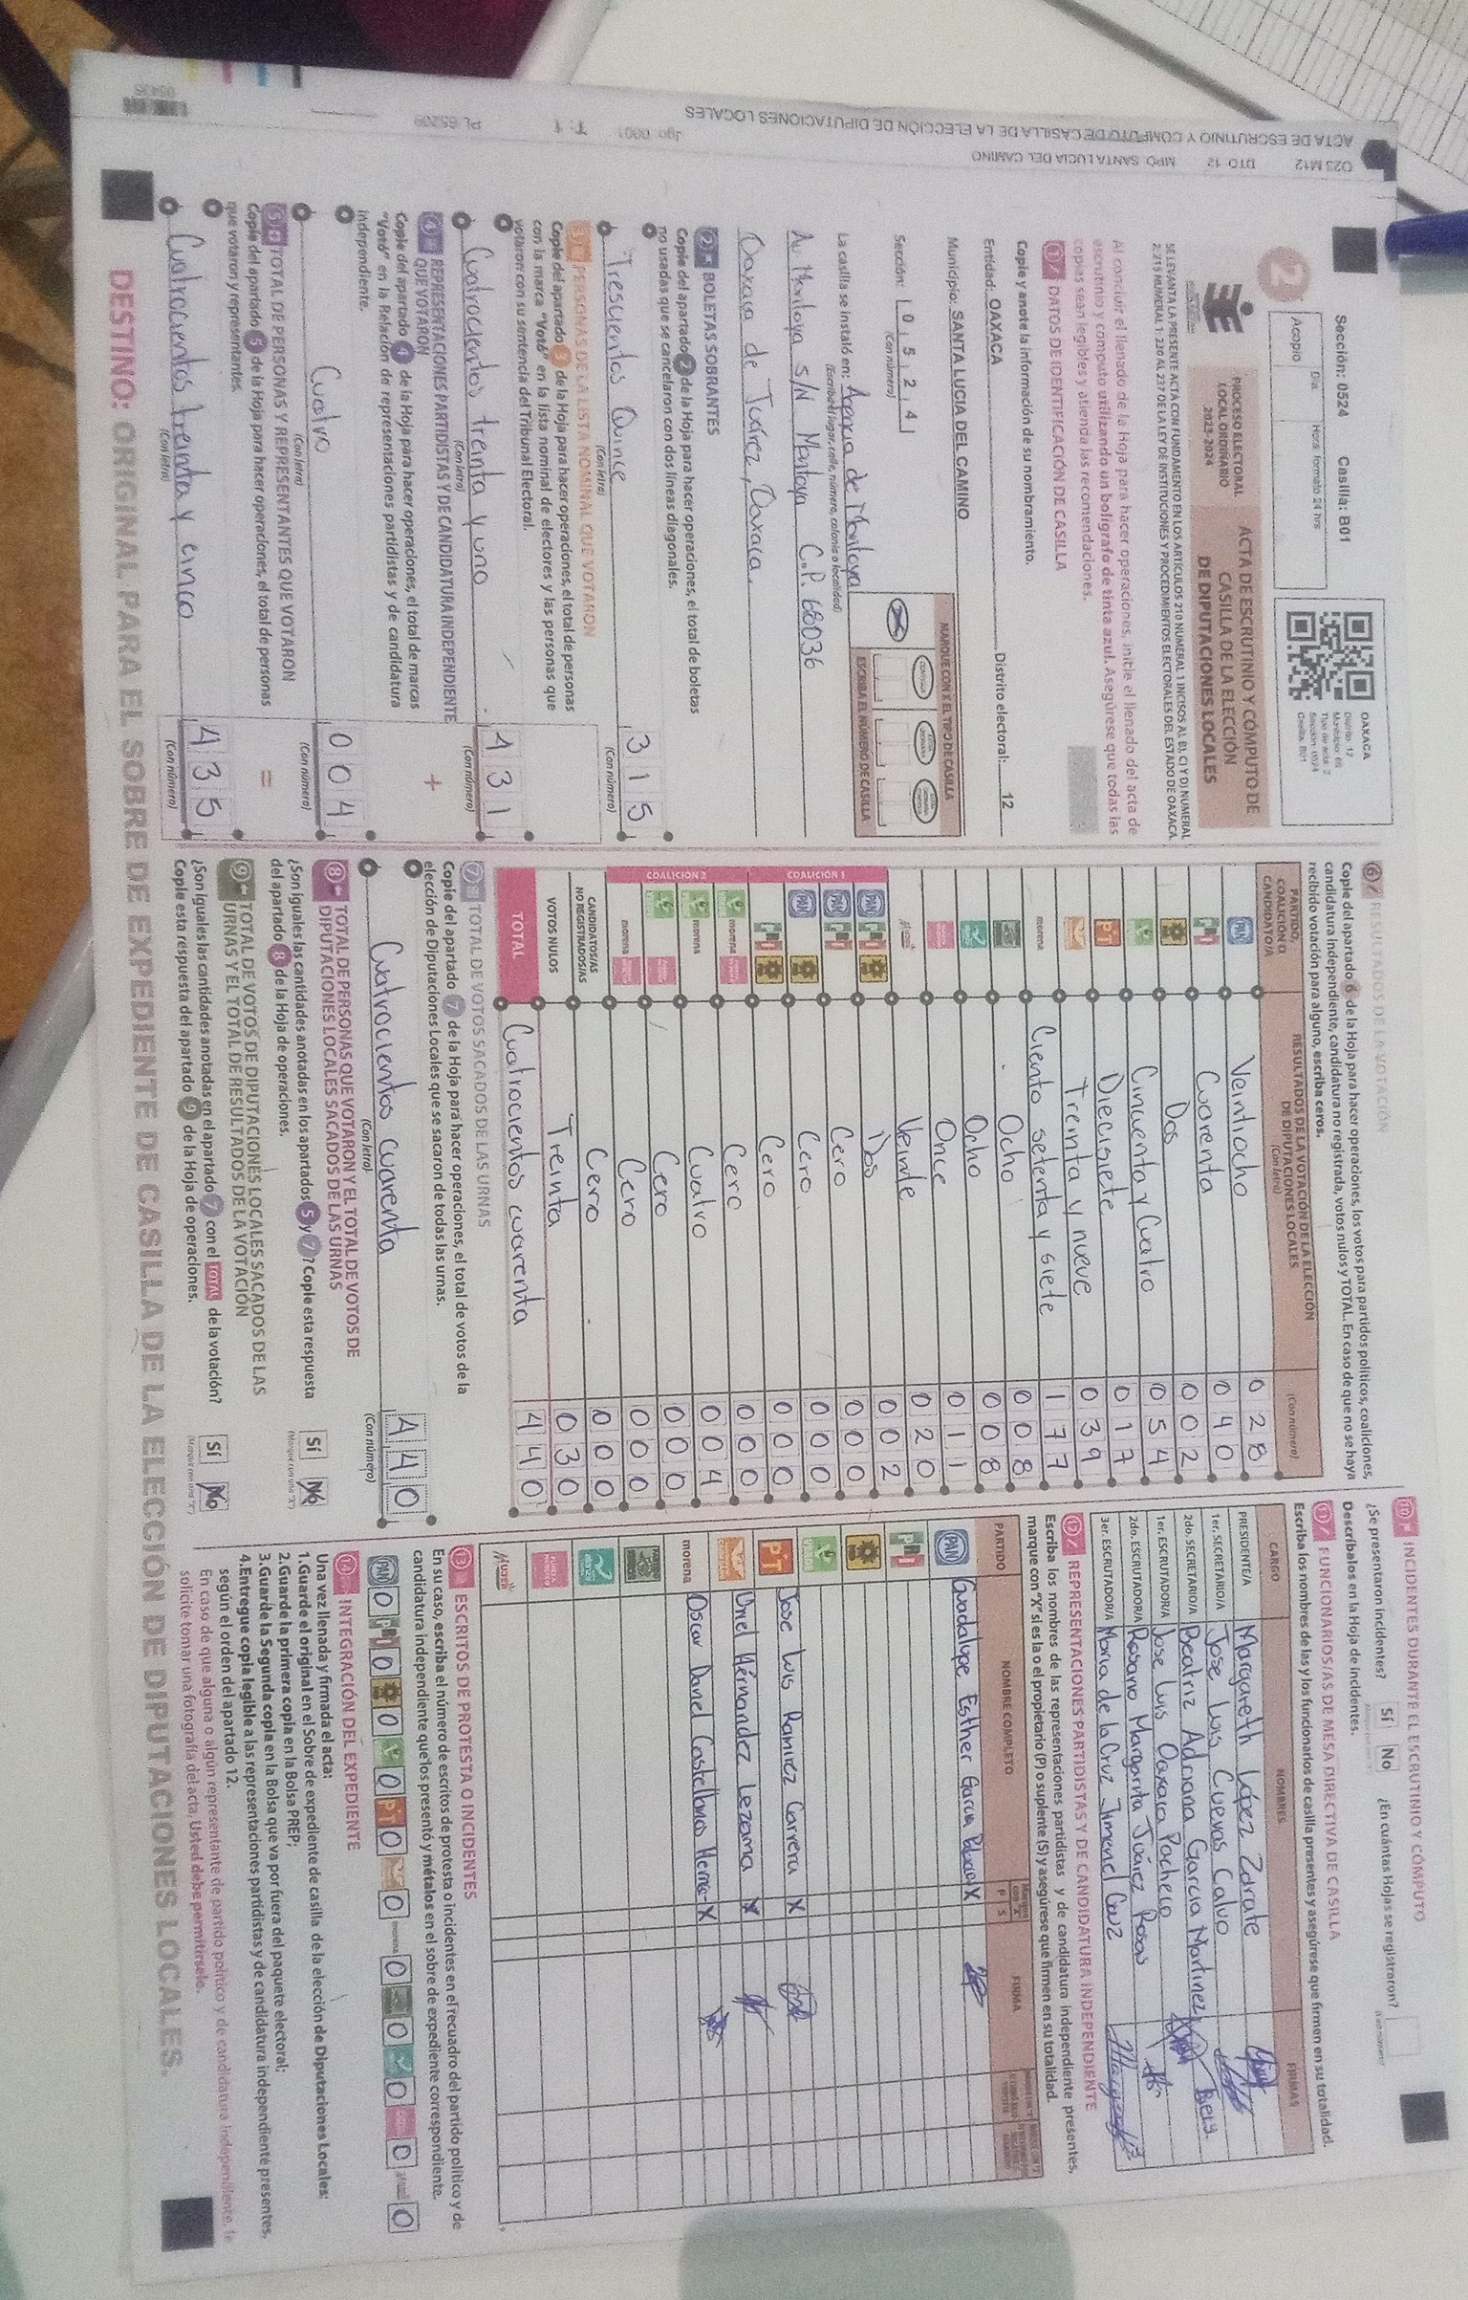 O23 M12 DTO. 12 MPO. SANTA LUCIA DEL CAMINO
ACTA DE ESCRUTINIO Y CÓMPUTO DE CASILLA DE LA ELECCIÓN DE DIPUTACIONES LOCALES
PL 65209
Sección: 0524 Casilla: B01
Día Hora: formato 24 hrs
Acopio
2
OAXACA
Distrito: 12
PROCESO ELECTORAL
LOCAL ORDINARIO
2023-2024
ACTA DE ESCRUTINIO Y CÓMPUTO DE
CASILLA DE LA ELECCIÓN
DE DIPUTACIONES LOCALES
SE LEVANTA LA PRESENTE ACTA CON FUNDAMENTO EN LOS ARTÍCULOS 210 NUMERAL 1 INCISOS A), B), C) Y D) NUMERAL
2; 215 NUMERAL 1; 220 AL 237 DE LA LEY DE INSTITUCIONES Y PROCEDIMIENTOS ELECTORALES DEL ESTADO DE OAXACA.
Al concluir el llenado de la Hoja para hacer operaciones, inicie el llenado del acta de
escrutinio y cómputo utilizando un bolígrafo de tinta azul. Asegúrese que todas las
copias sean legibles y atienda las recomendaciones.
1 DATOS DE IDENTIFICACIÓN DE CASILLA
Copie y anote la información de su nombramiento.
Entidad: OAXACA Distrito electoral: 12
Municipio: SANTA LUCIA DEL CAMINO
Sección: 0524
(Con número)
MARQUE CON X EL TIPO DE CASILLA
ESCRIBA EL NÚMERO DE CASILLA
La casilla se instaló en: Agencia de Montoya
(Escriba el lugar, calle, número, colonia o localidad)
Av. Montoya S/N Montoya C.P. 68036
Oaxaca de Juárez, Oaxaca.
2 BOLETAS SOBRANTES
Copie del apartado 2 de la Hoja para hacer operaciones, el total de boletas
no usadas que se cancelaron con dos líneas diagonales.
Trescientos Quince 315
(Con letra) (Con número)
3 PERSONAS DE LA LISTA NOMINAL QUE VOTARON
Copie del apartado 3 de la Hoja para hacer operaciones, el total de personas
con la marca "Votó" en la lista nominal de electores y las personas que
votaron con su sentencia del Tribunal Electoral.
Cuatrocientos treinta y uno 431
(Con letra) (Con número)
4 REPRESENTACIONES PARTIDISTAS Y DE CANDIDATURA INDEPENDIENTE
QUE VOTARON +
Copie del apartado 4 de la Hoja para hacer operaciones, el total de marcas
"Votó" en la Relación de representaciones partidistas y de candidatura
independiente.
Cuatro 004
(Con letra) (Con número)
5 TOTAL DE PERSONAS Y REPRESENTANTES QUE VOTARON =
Copie del apartado 5 de la Hoja para hacer operaciones, el total de personas
que votaron y representantes.
Cuatrocientos treinta y cinco 435
(Con letra) (Con número)
6 RESULTADOS DE LA VOTACIÓN
Copie del apartado 6 de la Hoja para hacer operaciones, los votos para partidos políticos, coaliciones,
candidatura independiente, candidatura no registrada, votos nulos y TOTAL. En caso de que no se haya
recibido votación para alguno, escriba ceros.
PARTIDO, COALICIÓN O CANDIDATO/A
RESULTADOS DE LA VOTACIÓN DE LA ELECCIÓN
DE DIPUTACIONES LOCALES
(Con letra) (Con número)
PAN Veintiocho 028
PRI Cuarenta 040
Dos 002
Cincuenta y Cuatro 054
PT Diecisiete 017
Treinta y nueve 039
morena Ciento setenta y siete 177
Ocho 008
Ocho 008
Once 011
Veinte 020
COALICIÓN 1
PAN PRI Dos 002
PAN PRI Cero 000
PAN Cero 000
PRI Cero 000
COALICIÓN 2
morena Cero 000
morena Cuatro 004
Cero 000
morena Cero 000
CANDIDATOS/AS
NO REGISTRADOS/AS Cero 000
VOTOS NULOS Treinta 030
TOTAL Cuatrocientos cuarenta 440
7 TOTAL DE VOTOS SACADOS DE LAS URNAS
Copie del apartado 7 de la Hoja para hacer operaciones, el total de votos de la
elección de Diputaciones Locales que se sacaron de todas las urnas.
Cuatrocientos cuarenta 440
(Con letra) (Con número)
8 TOTAL DE PERSONAS QUE VOTARON Y EL TOTAL DE VOTOS DE
DIPUTACIONES LOCALES SACADOS DE LAS URNAS
¿Son iguales las cantidades anotadas en los apartados 5 y 7? Copie esta respuesta
del apartado 8 de la Hoja de operaciones. Sí No
9 TOTAL DE VOTOS DE DIPUTACIONES LOCALES SACADOS DE LAS
URNAS Y EL TOTAL DE RESULTADOS DE LA VOTACIÓN
¿Son iguales las cantidades anotadas en el apartado 7 con el TOTAL de la votación?
Copie esta respuesta del apartado 9 de la Hoja de operaciones. Sí No
10 INCIDENTES DURANTE EL ESCRUTINIO Y CÓMPUTO
¿Se presentaron incidentes? Sí No ¿En cuántas Hojas se registraron?
Descríbalos en la Hoja de incidentes.
11 FUNCIONARIOS/AS DE MESA DIRECTIVA DE CASILLA
Escriba los nombres de las y los funcionarios de casilla presentes y asegúrese que firmen en su totalidad.
CARGO NOMBRES FIRMAS
PRESIDENTE/A Margareth López Zarate
1er. SECRETARIO/A Jose Luis Cuevas Calvo
2do. SECRETARIO/A Beatriz Adriana García Martinez Bety.
1er. ESCRUTADOR/A Jose Luis Oaxaca Pacheco
2do. ESCRUTADOR/A Rosario Margarita Juárez Rosas
3er. ESCRUTADOR/A Maria de la Cruz Jimenel Cruz
12 REPRESENTACIONES PARTIDISTAS Y DE CANDIDATURA INDEPENDIENTE
Escriba los nombres de las representaciones partidistas y de candidatura independiente presentes,
marque con "X" si es la o el propietario (P) o suplente (S) y asegúrese que firmen en su totalidad.
PARTIDO NOMBRE COMPLETO P S FIRMA
PAN Guadalupe Esther Garcia X
PRI
PT Jose Luis Ramirez Carrera X
Uriel Hérnandez Lezama X
morena Oscar Daniel Castellanos X
13 ESCRITOS DE PROTESTA O INCIDENTES
En su caso, escriba el número de escritos de protesta o incidentes en el recuadro del partido político y de
candidatura independiente que los presentó y métalos en el sobre de expediente correspondiente.
PAN 0 PRI 0 0 0 PT 0 0 morena 0 0 0 0 0
14 INTEGRACIÓN DEL EXPEDIENTE
Una vez llenada y firmada el acta:
1.Guarde el original en el Sobre de expediente de casilla de la elección de Diputaciones Locales;
2.Guarde la primera copia en la Bolsa PREP;
3.Guarde la Segunda copia en la Bolsa que va por fuera del paquete electoral;
4.Entregue copia legible a las representaciones partidistas y de candidatura independiente presentes,
según el orden del apartado 12.
En caso de que alguna o algún representante de partido político y de candidatura independiente, le
solicite tomar una fotografía del acta, Usted debe permitírselo.
DESTINO: ORIGINAL PARA EL SOBRE DE EXPEDIENTE DE CASILLA DE LA ELECCIÓN DE DIPUTACIONES LOCALES.